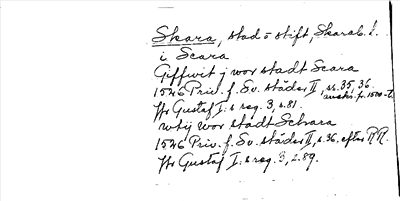 Skara, stad o stift, Skarab. l.
i Scara
Giffwit j wor stadt Scara
1546 Priv. f. Sv. städer II, ss. 35, 36.
avskr. fr. 1500-t.
Gustaf I:s reg. 3, s. 81.
wtij wor stadt Schara
1546 Priv. f. Sv. städer II, s. 36. efter RR.
Gustaf I:s reg. 3, s. 89.